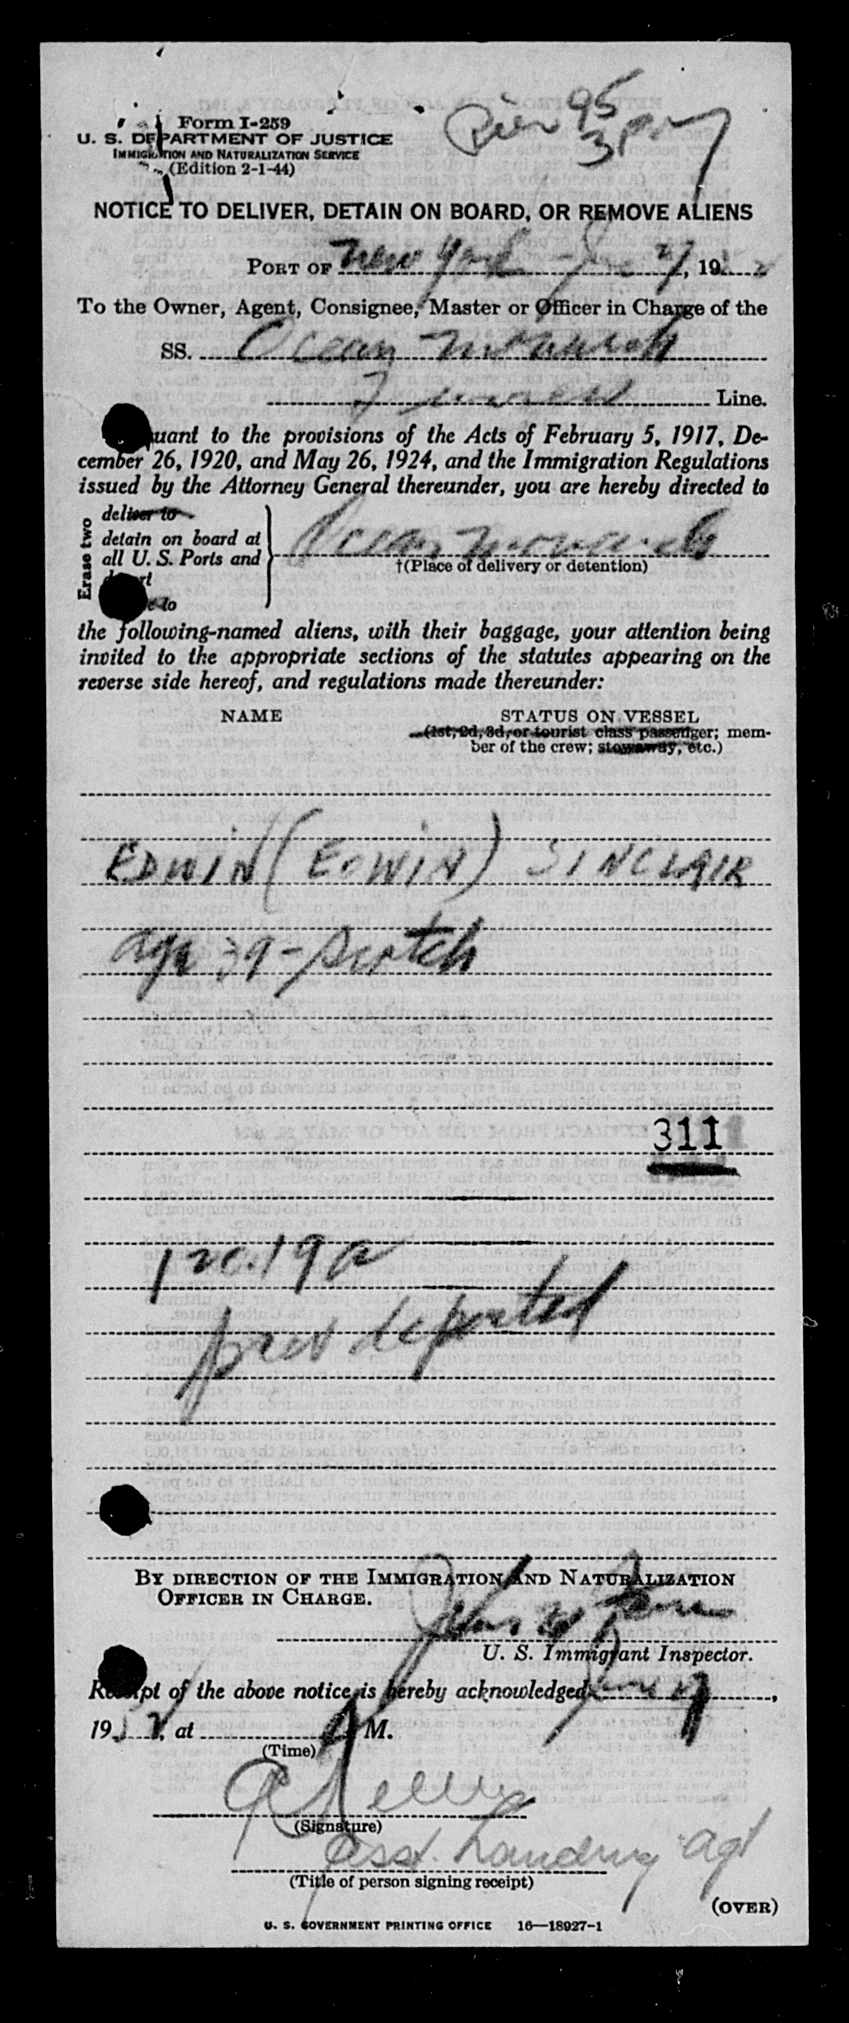 Pier 95
3 PM
Form I-259
U. S. DEPARTMENT OF JUSTICE
IMMIGRATION AND NATURALIZATION SERVICE
(Edition 2-1-44)
NOTICE TO DELIVER, DETAIN ON BOARD, OR REMOVE ALIENS
PORT OF New York - June 27, 1952
To the Owner, Agent, Consignee, Master or Officer in Charge of the
SS. Ocean Monarch
Furness Line.
Pursuant to the provisions of the Acts of February 5, 1917, De-
cember 26, 1920, and May 26, 1924, and the Immigration Regulations
issued by the Attorney General thereunder, you are hereby directed to
Erase two
deliver to
detain on board at
all U. S. Ports and
Ocean Monarch
†(Place of delivery or detention)
to
the following-named aliens, with their baggage, your attention being
invited to the appropriate sections of the statutes appearing on the
reverse side hereof, and regulations made thereunder:
NAME STATUS ON VESSEL
(1st, 2d, 3d, or tourist class passenger; mem-
ber of the crew; stowaway, etc.)
EDWIN (EDWIN) SINCLAIR
age 39 - Scotch
311
prev deported
BY DIRECTION OF THE IMMIGRATION AND NATURALIZATION
OFFICER IN CHARGE.
John W
U. S. Immigrant Inspector.
Receipt of the above notice is hereby acknowledged June 27,
1952, at M.
(Time)
(Signature)
Asst. Landing Agt
(Title of person signing receipt)
(OVER)
U. S. GOVERNMENT PRINTING OFFICE 16—18927-1